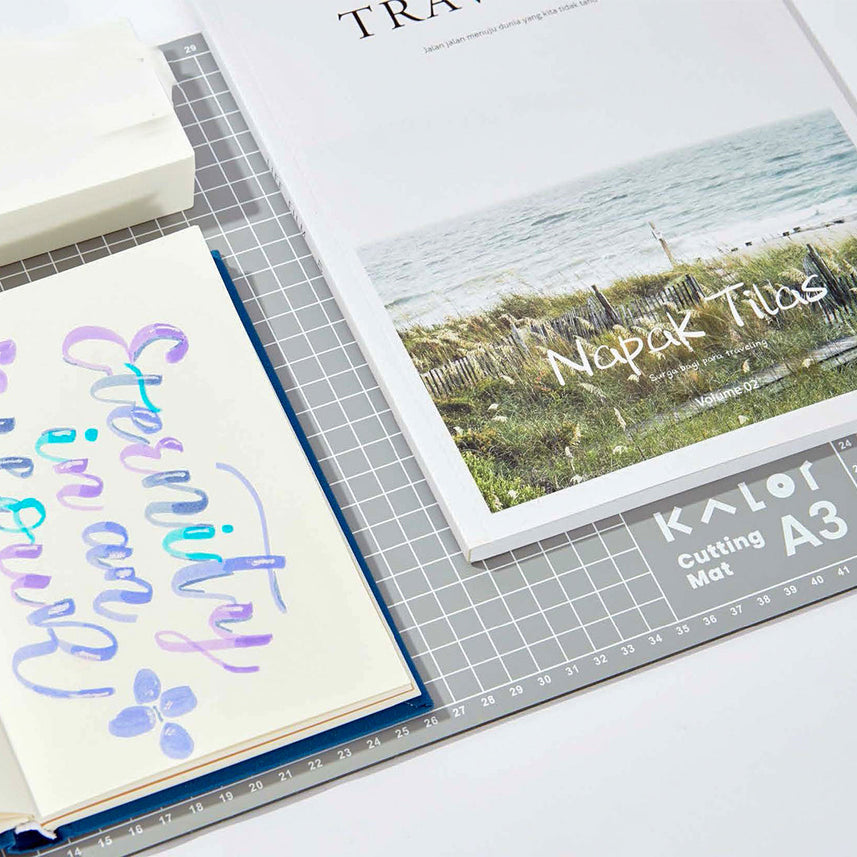 TRAV
Jalan jalan menuju dunia yang kita tidak tahu
Napak Tilas
Surga bagi para traveling
Volume 02
Eternity
in an
hour
KALOR
Cutting
Mat
A3
29
24
14 15 16 17 18 19 20 21 22 23 24 25 26 27 28 29 30 31 32 33 34 35 36 37 38 39 40 41